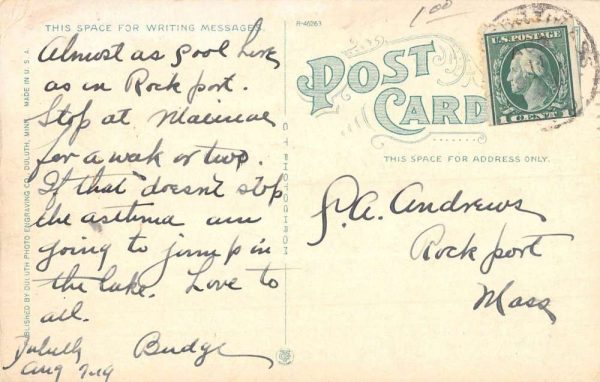 THIS SPACE FOR WRITING MESSAGES
Almost as cool here
as in Rockport.
Stop at
for a week or two.
If that doesn't stop
the asthma am
going to jump in
the lake. Love to
all.
Duluth Budge
Aug 7-19
PUBLISHED BY DULUTH PHOTO ENGRAVING CO. DULUTH, MINN. MADE IN U.S.A.
R-46263
C T PHOTOCHROM
1.00
POST
CARD
THIS SPACE FOR ADDRESS ONLY.
U.S. POSTAGE
1 CENT 1
P.A. Andrews
Rockport
Mass